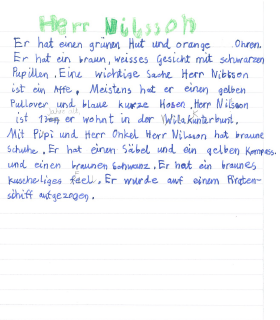 Herr Nilsson
Er hat einen grünen Hut und orange Ohren.
Er hat ein braun, weisses Gesicht mit schwarzen
Pupillen. Eine wichtige Sache Herr Nilsson
ist ein Affe. Meistens hat er einen gelben
Pullover und blaue kurze Hosen. Herr Nilsson
ist er wohnt in der
Mit Pipi und Herr Onkel Herr Nilsson hat braune
schuhe. Er hat einen Säbel und ein gelben Kompass.
und einen braunen Schwanz. Er hat ein braunes
kuscheliges feel. Er wurde auf einem Piraten-
schiff aufgezogen.